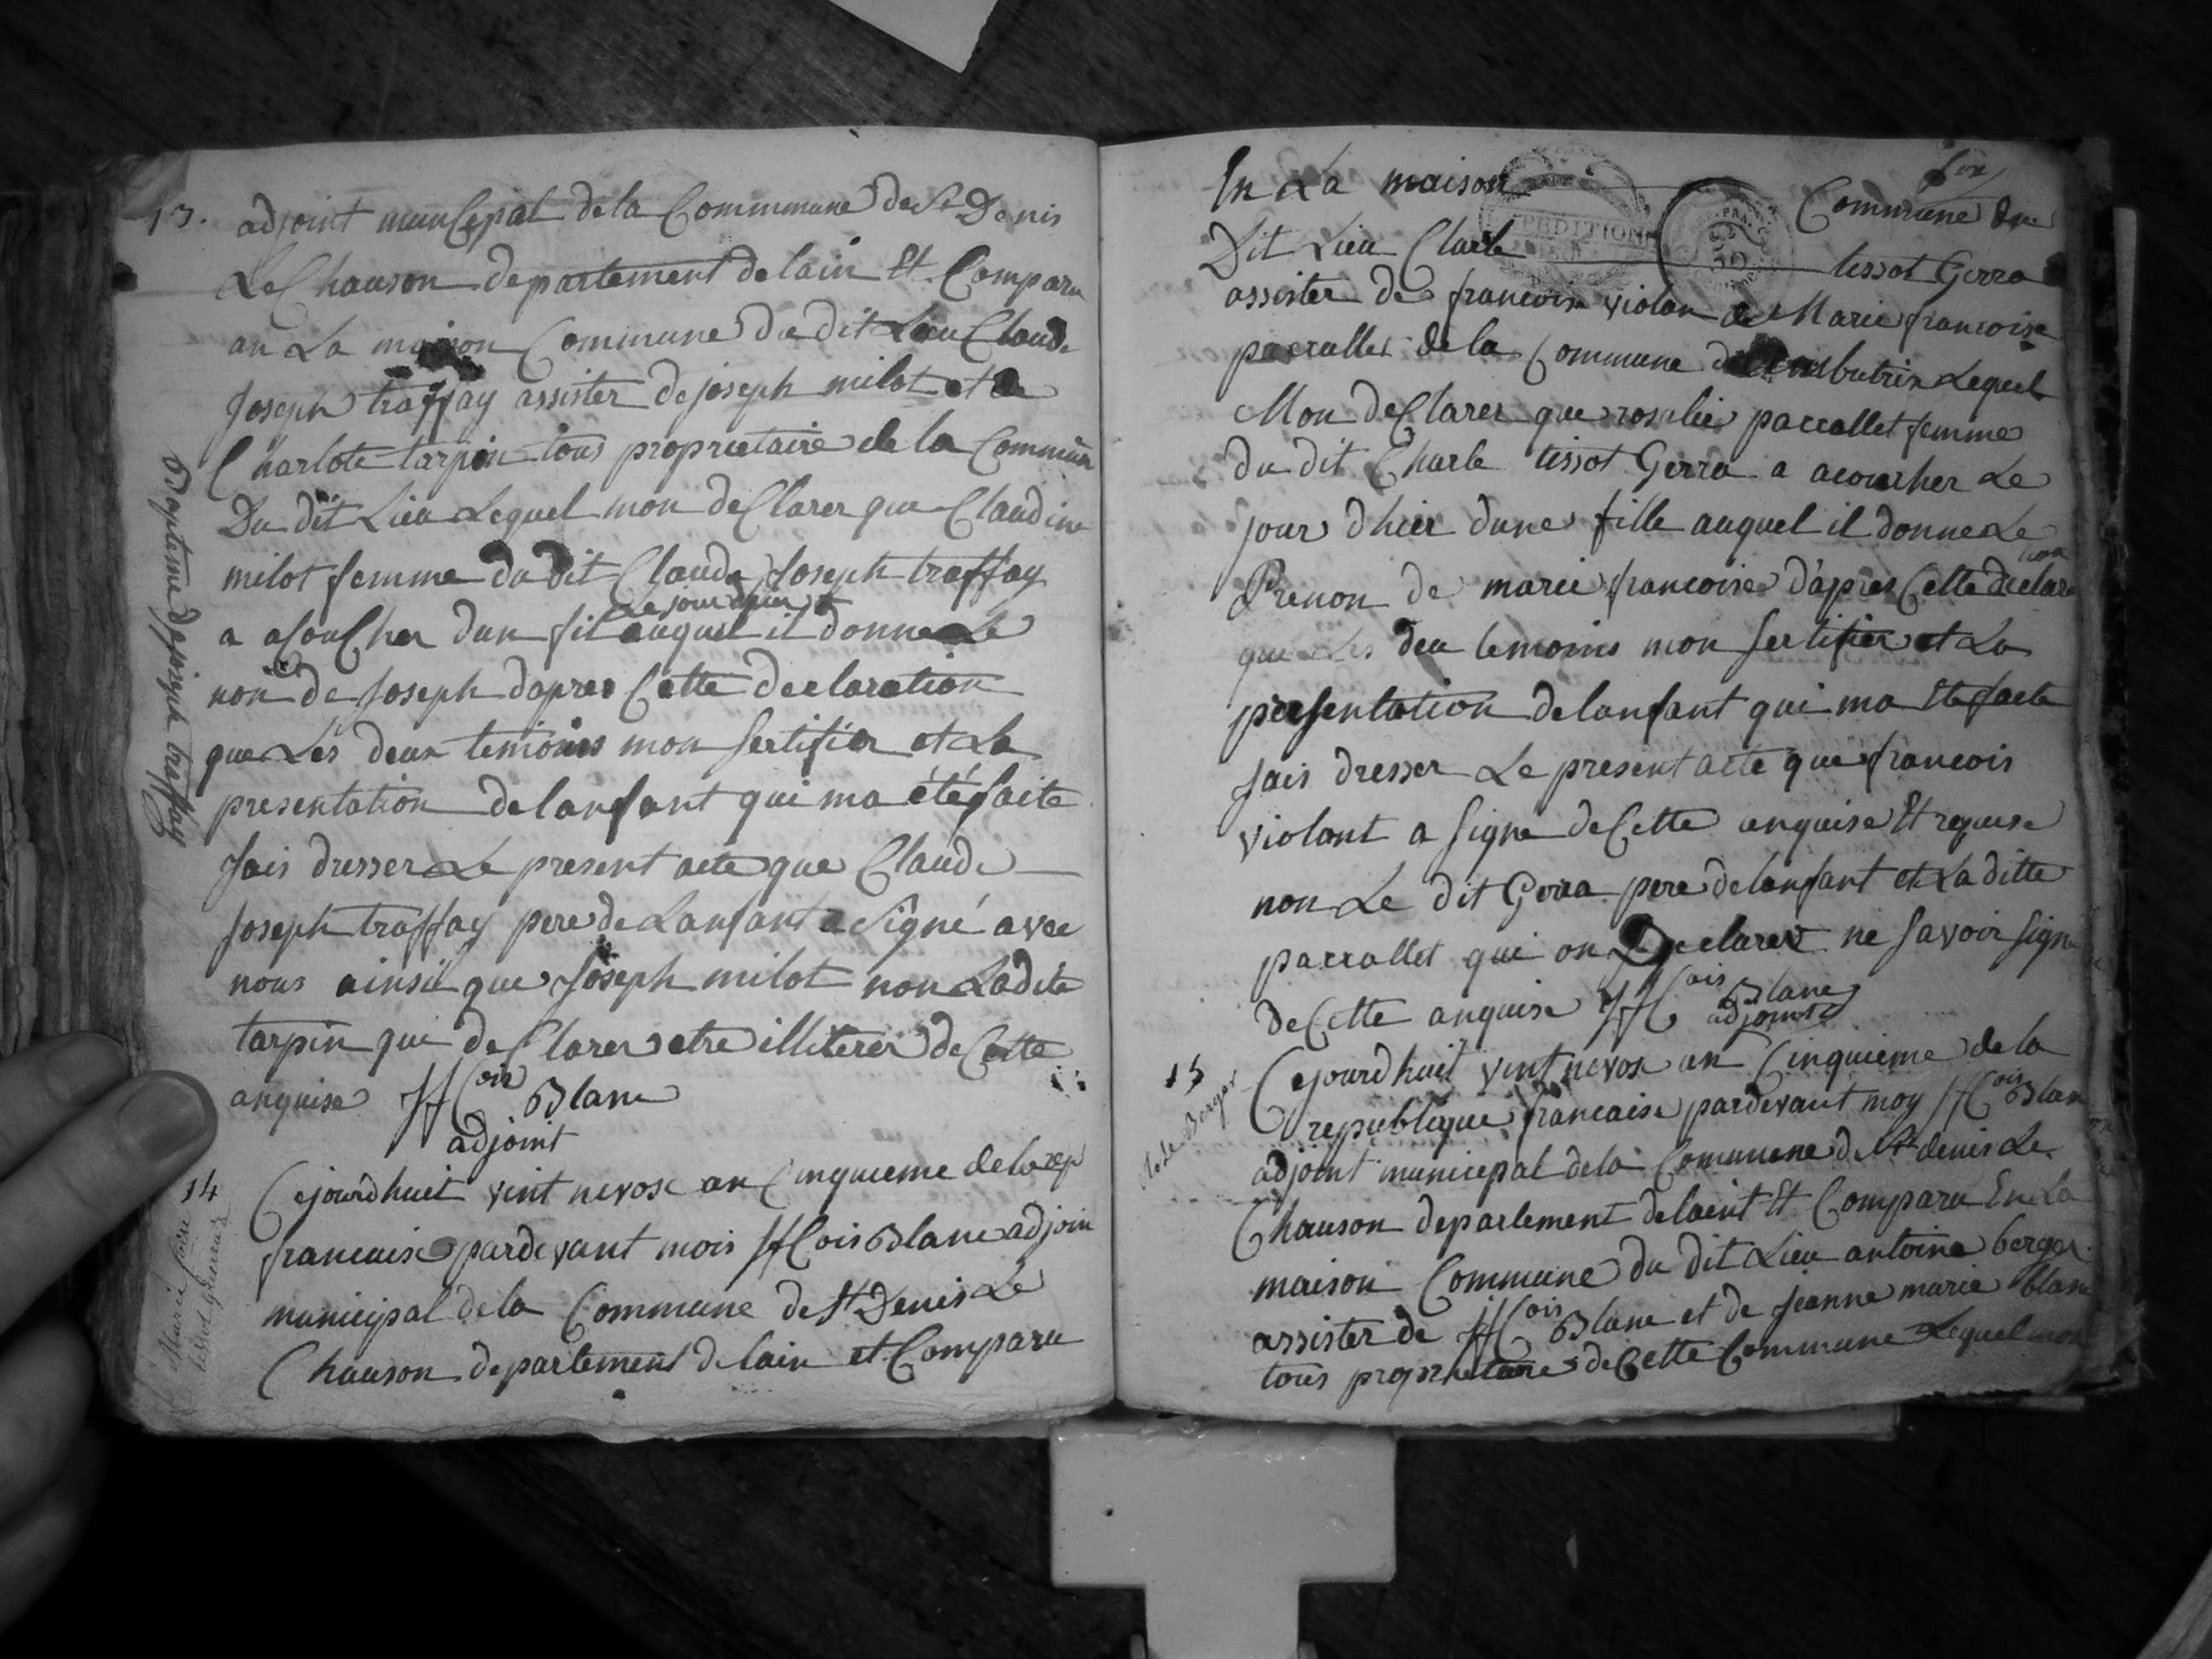 13.
adjoint munCepal de la Commmune de St Denis
Le Chauson departement de lain Et Comparu
an La maison Commune du dit Lieu Claude
Joseph traffay assister de joseph milot et de
Charlote tarpin tous proprietaire de la Commun
Du dit Lieu Lequel mon deClarer que Claudine
milot femme du dit Claude Joseph traffay
Le jour dhier
a aCouCher dun fil auquel il donne Le
non de Joseph dapres Cette declaration
que Les deux temoins mon sertifier et La
presentation de lanfant qui ma été faite
Jais dresser Le present acte que Claude
Joseph traffay pere de Lanfant a Signé avec
nous ainsii que Joseph milot non Ladite
tarpin qui deClarer etre illiterer de Cette
anquise JfCois Blanc
adjoint
Bapteme de joseph traffay
14
Cejourdhuit vint nevose an Cinquieme de la rep
francaise pardevant mois JfCois Blanc adjoin
municipal de la Commune de St Denis Le
Chauson departement de lain et Comparu
Marie foise
tissot guerraz
En La maison Commune du
Dit Lieu Charle tissot Gerra
assister de francois violan de Marie francoise
paccallet de la Commune Lequel
Mon deClarer que rosalie paccallet femme
du dit Charle tissot Gerra a acoucher Le
jour dhier dune fille auquel il donne Le
Prenon de marie francoise d'apres Cette declara
tion
que Les deu temoins mon sertifier et La
persentation de lanfant qui ma Ete faite
Jais dresser Le present acte que francois
violant a signe de Cette anquise Et requise
non Le dit Gerra pere de lanfant et La ditte
paccallet qui on Declarer ne savoir signe
de Cette anquise JfCois Blanc
adjoint
15
Cejourdhuit vint nevose an Cinquieme de la
republique francaise pardevant moy JfCois Blan
adjoint municepal de la Commune de St denis Le
Chauson departement de laint Et Comparu En La
maison Commune du dit Lieu antoine berger
assister de JfCois Blanc et de Jeanne marie blanc
tous proprietaire de Cette Commune Lequel mon
Berger